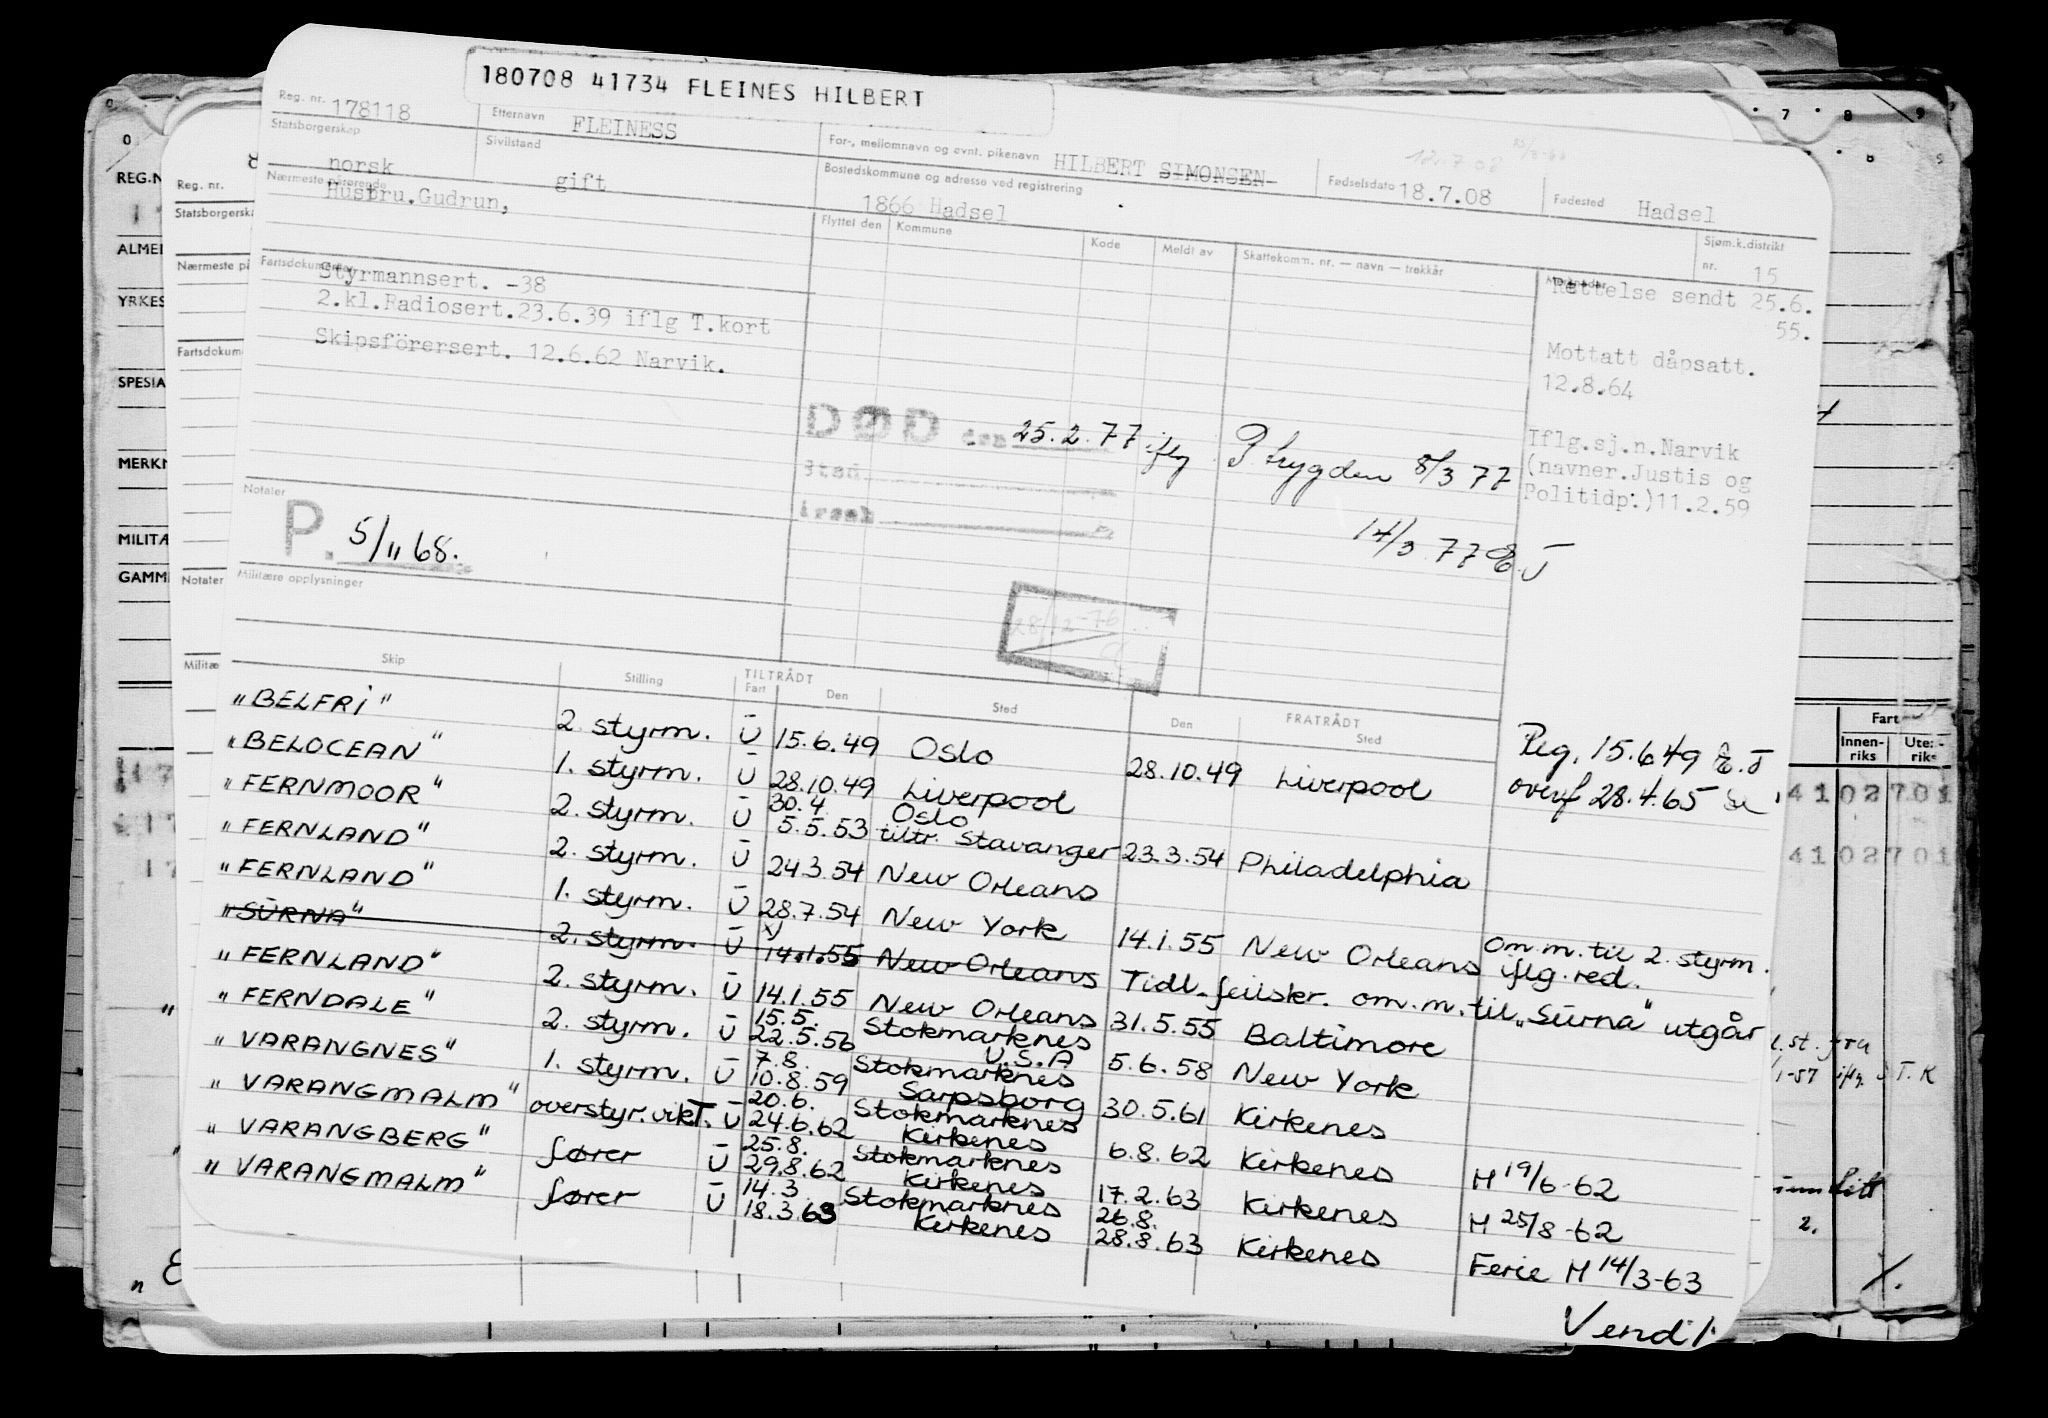 180708 41734 FLEINES HILBERT
Reg. nr. 178118 Etternavn FLEINESS For-, mellomnavn og evnt. pikenavn HILBERT SIMONSEN Fødselsdato 18.7.08 Fødested Hadsel
Statsborgerskap norsk Sivilstand gift Bostedskommune og adresse ved registrering 1866 Hadsel Sjøm.k.distrikt nr. 15
Nærmeste pårørende Husbru.Gudrun, Flyttet den Kommune Kode Meldt av Skattekomm. nr. — navn — trekkår
Fartsdokumenter Styrmannsert. -38
2.kl.Radiosert.23.6.39 iflg T.kort
Skipsförersert. 12.6.62 Narvik.
Merknader Rettelse sendt 25.6.
55.
Mottatt dåpsatt.
12.8.64
Iflg.sj.n.Narvik
(navner.Justis og
Politidp:)11.2.59
DØD den 25.2.77 iflg P.trygden 8/3 77
Sted
årsak
14/3 77 E.J
Notater
P. 5/11 68.
Militære opplysninger
28/12-76
Skip Stilling TILTRÅDT Fart Den Sted FRATRÅDT Den Sted
"BELFRI" 2. styrm. U 15.6.49 Oslo 28.10.49 Liverpool Reg. 15.6.49 E.J
"BELOCEAN" 1. styrm. U 28.10.49 Liverpool overf 28.4.65
"FERNMOOR" 2. styrm. U 30.4. Oslo
5.5.53 tiltr. Stavanger 23.3.54 Philadelphia
"FERNLAND" 2. styrm. U 24.3.54 New Orleans
"FERNLAND" 1. styrm. U 28.7.54 New York 14.1.55 New Orleans om.m. til 2. styrm. iflg. red.
"SÜRNA" 2. styrm. U 14.1.55 New Orleans Tidl. feilskr. om.m. til "Sürna" utgår
"FERNLAND" 2. styrm. U 14.1.55 New Orleans 31.5.55 Baltimore
"FERNDALE" 2. styrm. U 15.5. Stokmarknes
22.5.56 U.S.A 5.6.58 New York
"VARANGNES" 1. styrm. U 7.8. Stokmarknes
10.8.59 Sarpsborg 30.5.61 Kirkenes
"VARANGMALM" overstyr.vikT. U 20.6. Stokmarknes
24.6.62 Kirkenes 6.8.62 Kirkenes H 19/6-62
"VARANGBERG" fører U 25.8. Stokmarknes
29.8.62 Kirkenes 17.2.63 Kirkenes H 25/8-62
"VARANGMALM" fører U 14.3. Stokmarknes 26.8.
18.3.63 Kirkenes 28.8.63 Kirkenes Ferie H 14/3-63
Vend!
REG.N
ALMEI
YRKES
SPESIA
MERKN
MILITÆ
GAMM
Reg. nr. 8
Statsborgerska
Nærmeste på
Fartsdokum
Notater
Militæ
7 8 9
Fart
Innen-
riks
Uten-
riks
41 02 701
41 02 701